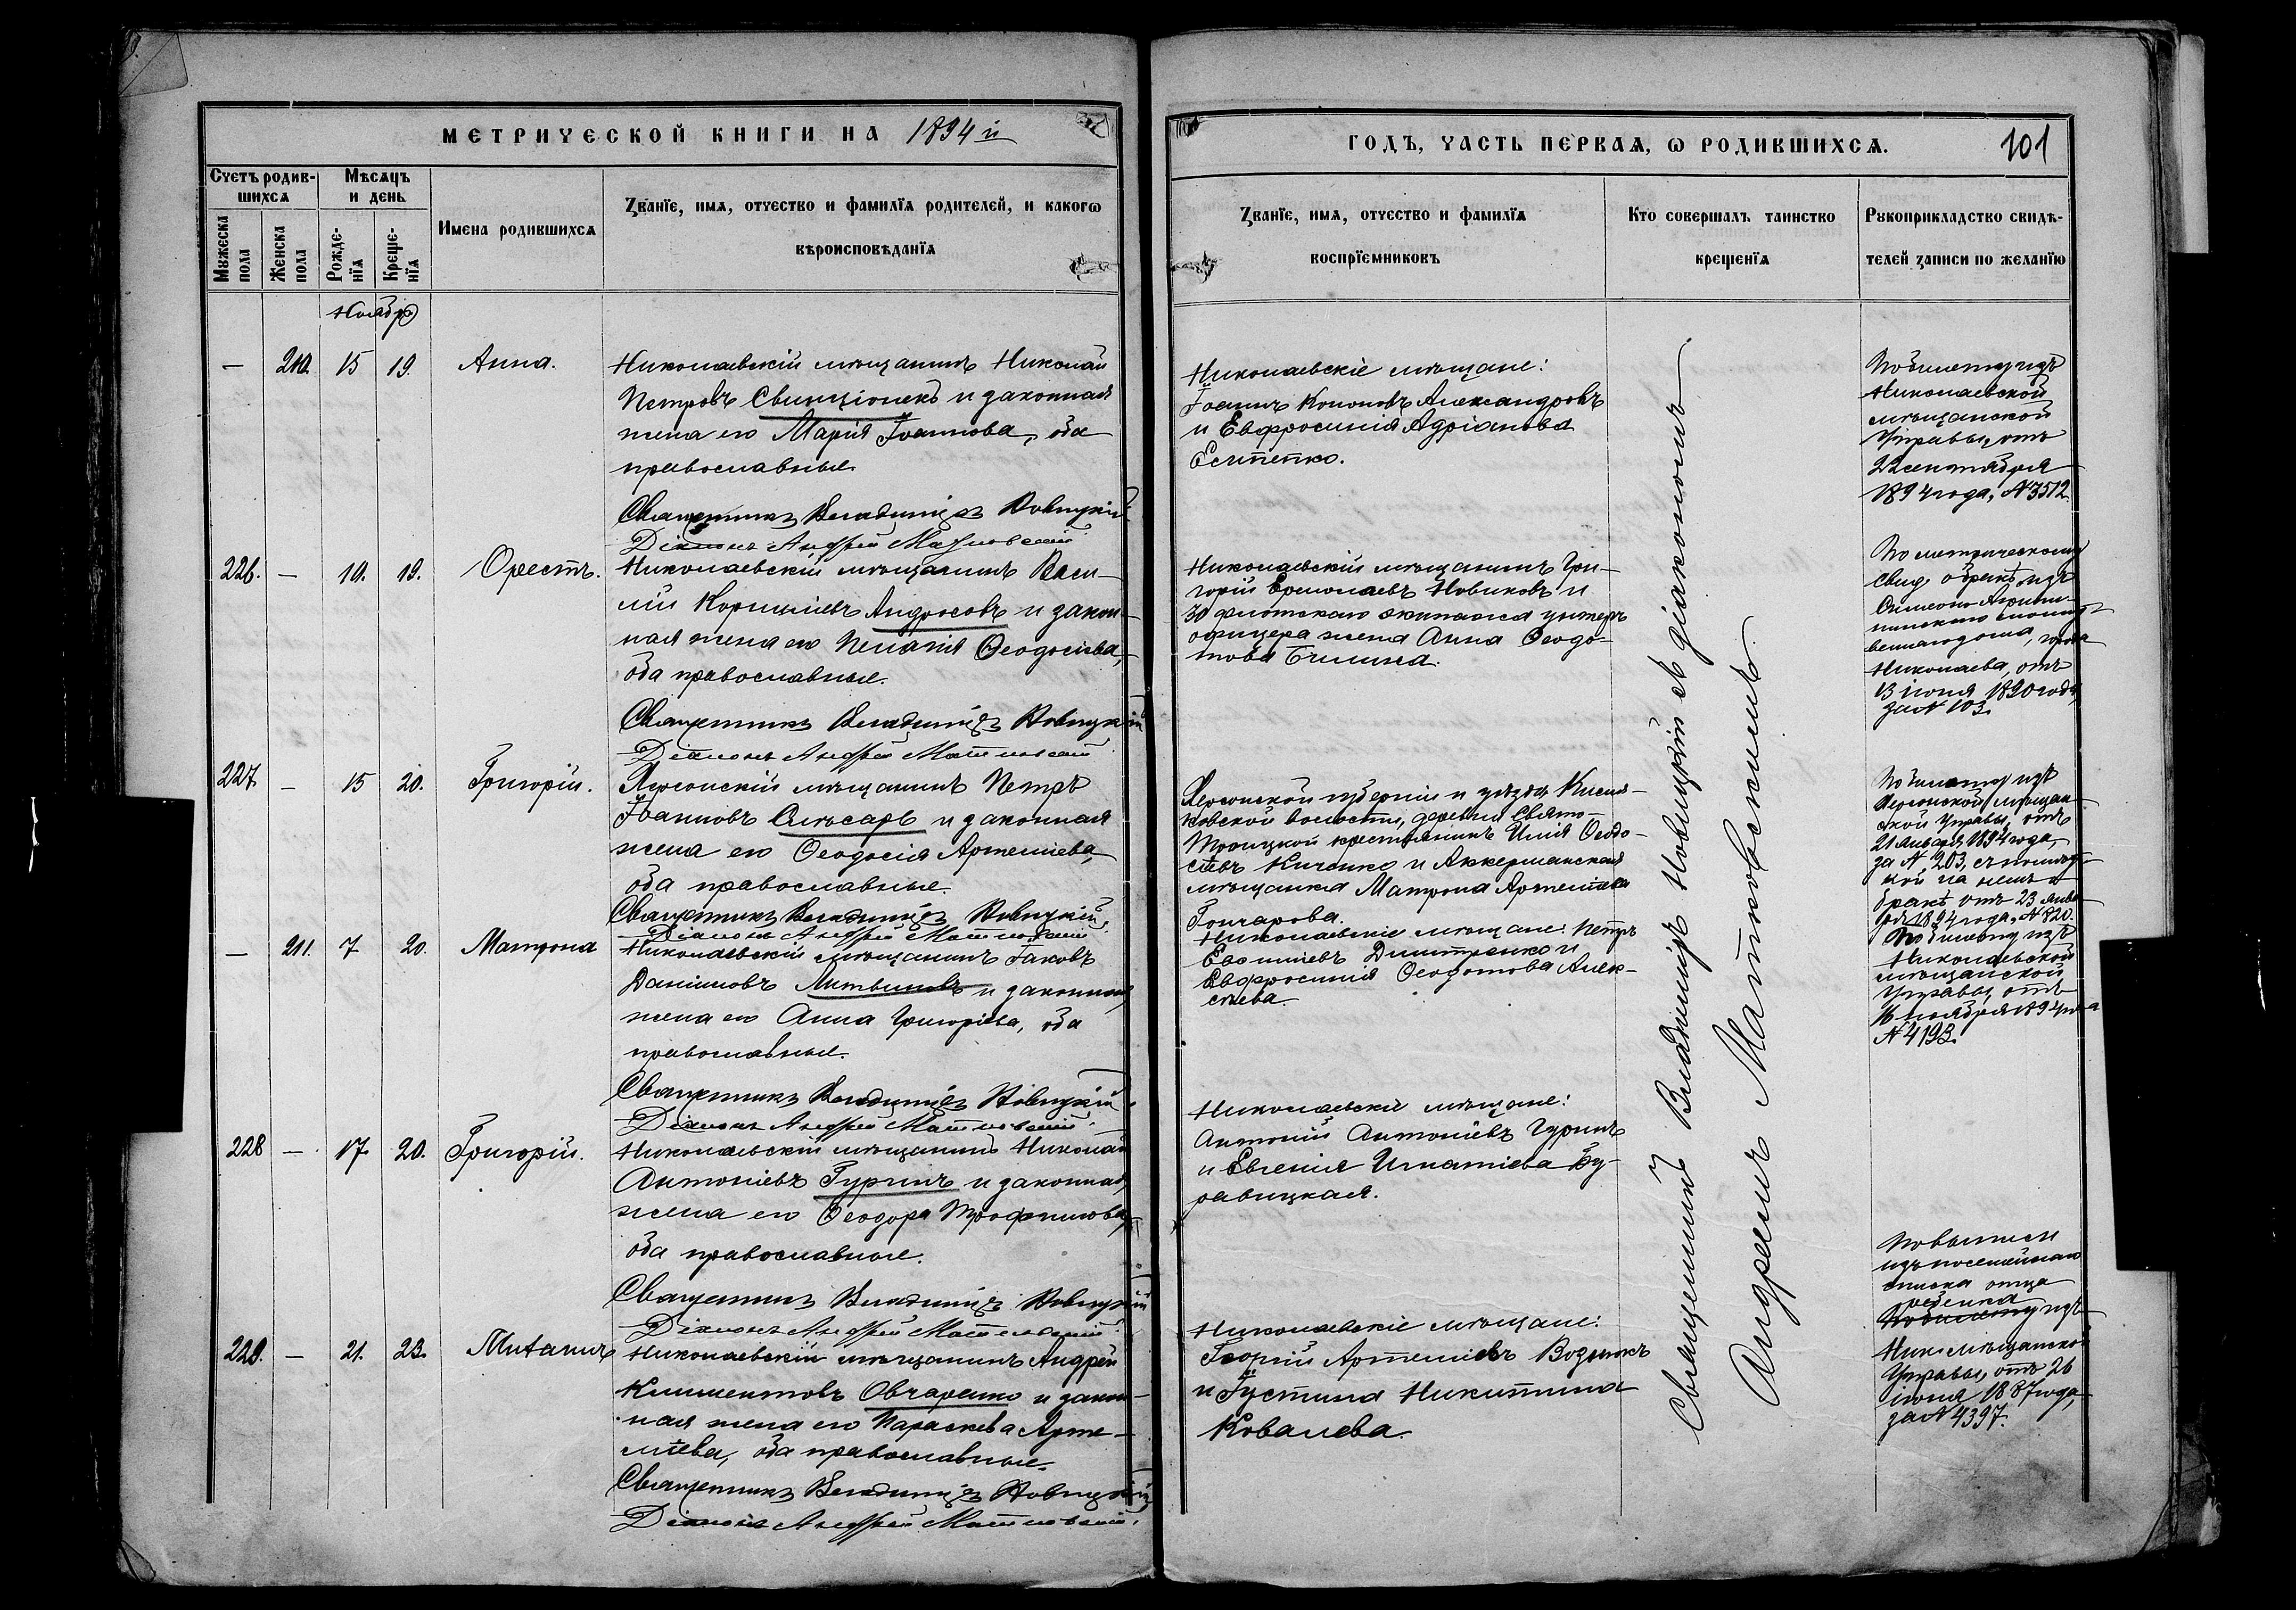 МЕТРИЧЕСКОЙ КНИГИ НА 1894 й
Счетъ родив-
шихся
Мѣсяцъ
и день
Мужеска
пола
Женска
пола
Рожде-
нїя
Креще-
нїя
Имена родившихся
Званїе, имя, отчество и фамилїя родителей, и какогѡ
вѣроисповѣданїя
Ноября
— 210. 15 19. Анна.
Николаевскій мѣщанинъ Николай
Петровъ Свинціонекъ и законная
жена его Марія Іоаннова, оба
православные.
Священникъ Владиміръ Новицкій
Діаконъ Андрей Матковскій
226. — 10. 19. Орестъ.
Николаевскій мѣщанинъ Васи-
лій Корниліевъ Андросовъ и закон-
ная жена его Пелагія Ѳеодосіева,
оба православные.
Священникъ Владиміръ Новицкій
Діаконъ Андрей Матковскій
227. — 15 20. Григорій.
Херсонскій мѣщанинъ Петръ
Іоанновъ Слѣсарь и законная
жена его Ѳеодосія Артеміева,
оба православные.
Священникъ Владиміръ Новицкій
Діаконъ Андрей Матковскій
— 211. 7 20. Матрона
Николаевскій мѣщанинъ Іаковъ
Даніиловъ Литвиновъ и законная
жена его Анна Григоріева, оба
православные.
Священникъ Владиміръ Новицкій
Діаконъ Андрей Матковскій
228 — 17. 20. Григорій.
Николаевскій мѣщанинъ Николай
Антоніевъ Гуринъ и законная
жена его Ѳеодора Трофимова,
оба православные.
Священникъ Владиміръ Новицкій
Діаконъ Андрей Матковскій
229. — 21. 23. Михаилъ
Николаевскій мѣщанинъ Андрей
Климентовъ Овчаренко и закон-
ная жена его Параскева Арте-
міева, оба православные.
Священникъ Владиміръ Новицкій
Діаконъ Андрей Матковскій
ГОДЪ, ЧАСТЬ ПЕРВАЯ, Ѡ РОДИВШИХСЯ.
101
Званїе, имя, отчество и фамилїя
воспрїемниковъ
Кто совершалъ таинство
крещенїя
Рукоприкладство свидѣ-
телей записи по желанїю
Николаевскіе мѣщане:
Іоаннъ Кононовъ Александровъ
и Евфросинія Адріанова
Есипенко.
Николаевскій мѣщанинъ Гри-
горій Ермолаевъ Новиковъ и
30 флотскаго экипажа унтеръ
офицера жена Анна Ѳеодо-
това
Херсонской губерніи и уѣзда Кисля-
ковской волости, деревни Свято-
Троицкой крестьянинъ Илія Ѳеодо-
сіевъ Киченко и Аккерманская
мѣщанка Матрона Артеміева
Гончарова.
Николаевскіе мѣщане: Петръ
Евфиміевъ Димитренко и
Евфросинія Ѳеодотова Алек-
сѣева
Николаевскіе мѣщане:
Антоній Антоніевъ Гуринъ
и Евгенія Игнатіева Бу-
равицкая.
Николаевскіе мѣщане:
Георгій Артеміевъ
и Іустина Никитина
Ковалева.
Священникъ Владиміръ Новицкій съ діакономъ
Андреемъ Матковскимъ.
По билету изъ
Николаевской
мѣщанской
Управы, отъ
22 сентября
1894 года, № 3512.
По метрическому
свид. о бракѣ изъ
Симеоно-Агрипи-
нинскаго
города
Николаева, отъ
13 іюня 1890 года,
за № 103.
По билету изъ
Херсонской мѣщан-
ской Управы, отъ
21 января 1894 года,
за № 203, съ помѣт-
кой на немъ о
бракѣ отъ 23 янва-
ря 1894 года, № 820.
По билету изъ
Николаевской
мѣщанской
Управы, отъ
16 ноября 1894 года
№ 4193.
По выписи
изъ посемейнаго
списка отца
ребенка
По билету изъ
Ник. мѣщанской
Управы, отъ 26
іюня 1887 года,
за № 4397.